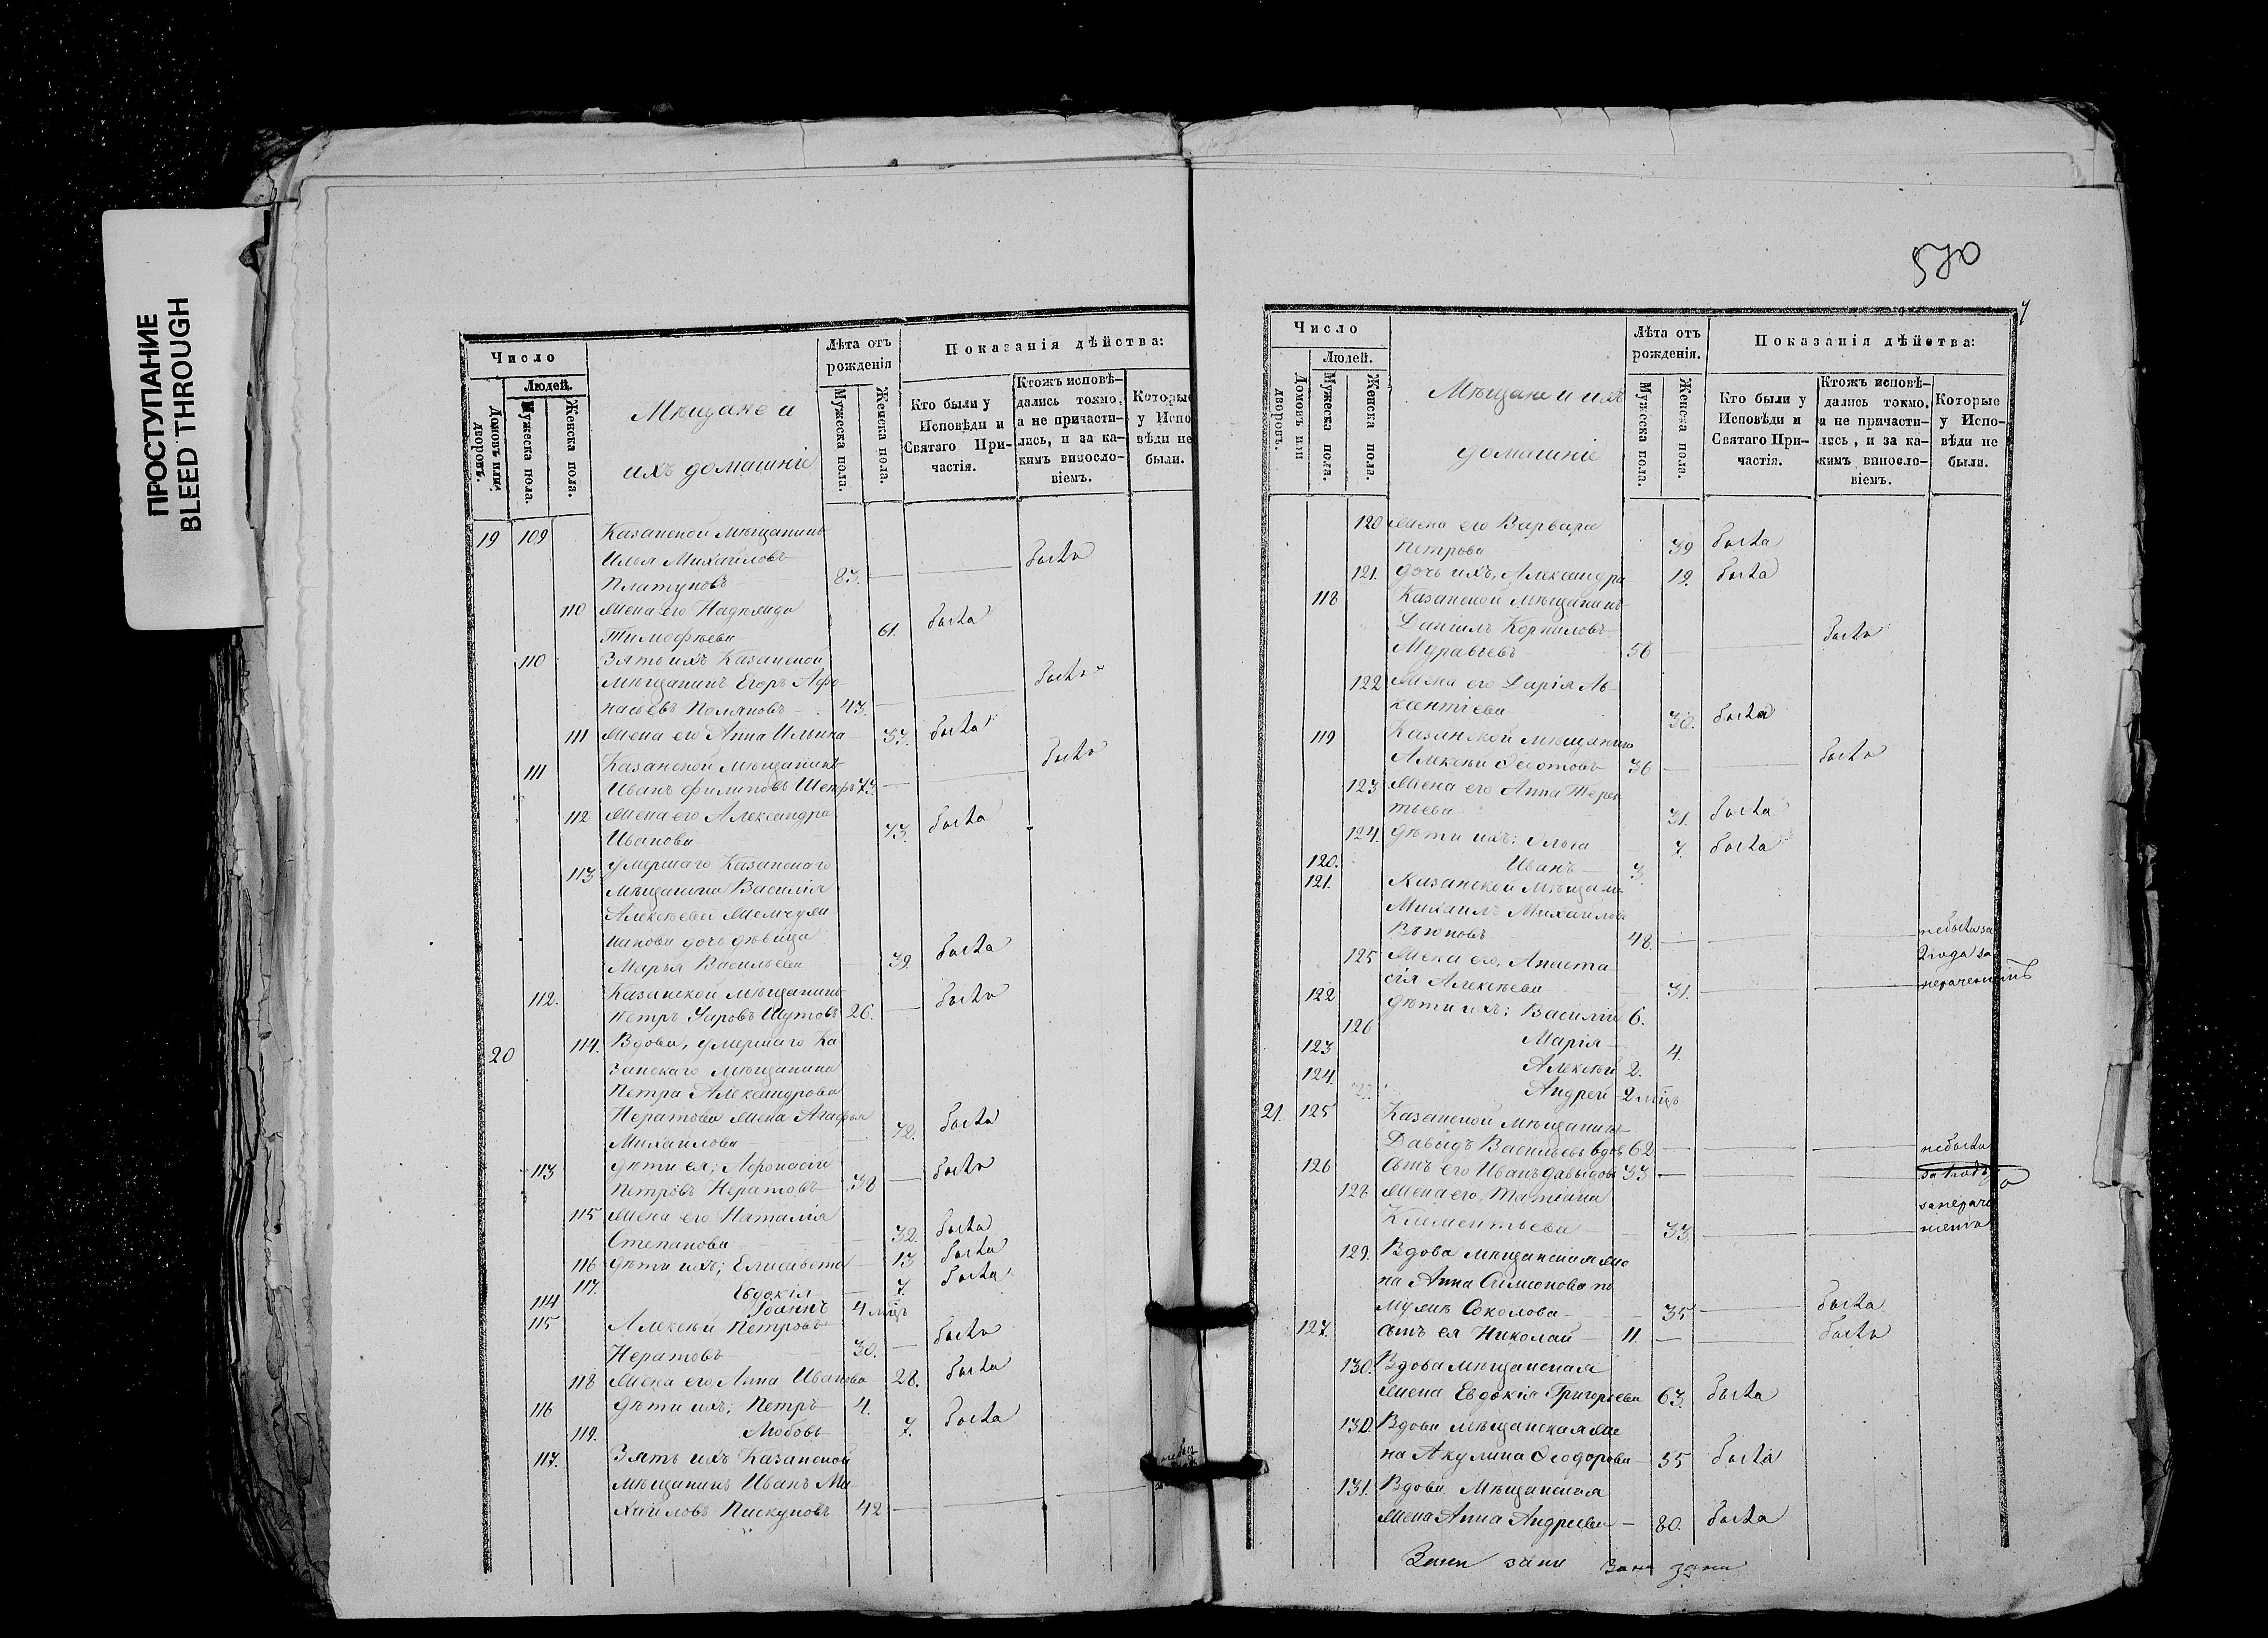 ПРОСТУПАНИЕ
BLEED THROUGH
Число
Людей.
Домовъ или дворовъ.
Мужеска пола.
Женска пола.
Мѣщане и
ихъ домашніе
Лѣта отъ
рожденія
Мужеска пола.
Женска пола.
Показанія дѣйства:
Кто были у
Исповѣди и
Святаго При-
частія.
Ктожъ исповѣ-
дались токмо,
а не причасти-
лись, и за ка-
кимъ винос­ло-
віемъ.
Которые
у Испо
вѣди не
были.
19 109 Казанской Мѣщанинъ
Илья Михайловъ
Платуновъ 83. былъ
110 Жена его Надежда
Тимофѣева 61. была
110 Зять ихъ Казанской
мѣщанинъ Егоръ Афо-
насьевъ Поляковъ 43. былъ
111 Жена его Анна Ильина 37. была
111 Казанской Мѣщанинъ
Иванъ Филиповъ 73. былъ
112 Жена его Александра
Иванова 73. была
113 умершаго Казанскаго
мѣщанина Василія
Алексѣева
дочь дѣвица
Марья Васильева 39. была
112. Казанской Мѣщанинъ
Петръ Шутовъ 26. былъ
20 114. Вдова, умершаго Ка
занскаго мѣщанина
Петра Александрова
Нератова жена Агафья
Михайлова 72. была
113 дѣти ея; Афонасій
Петровъ Нератовъ 38 былъ
115 Жена его Наталія
Степанова 32. была
116 дѣти ихъ; Елисавета 13 была
117. Евдокія 7. была
114 Іоаннъ 4 мѣц
115 Алексѣй Петровъ
Нератовъ 30. былъ
118 Жена его Анна Иванова 28. была
116 дѣти ихъ; Петръ 4.
119. Любовь 7. была
117. Зять ихъ Казанской
мѣщанинъ Иванъ Ми
хайловъ Пискуновъ 42
570
7
Число
Людей.
Домовъ или дворовъ.
Мужеска пола.
Женска пола.
Мѣщане и ихъ
домашніе
Лѣта отъ
рожденія.
Мужеска пола.
Женска пола.
Показанія дѣйства:
Кто были у
Исповѣди и
Святаго При-
частія.
Ктожъ исповѣ-
дались токмо,
а не причасти-
лись, и за ка-
кимъ винос­ло-
віемъ.
Которые
у Испо-
вѣди не
были.
120 Жена его Варвара
Петрова 39 была
121. дочь ихъ, Александра 12. была
118 Казанской мѣщанинъ
Даніилъ Корниловъ
Муравьевъ 56 былъ
122 Жена его Дарія Ав
ксентіева 30. была
119 Казанской мѣщанинъ
Алексѣй Ѳедотовъ 36 былъ
123 Жена его Анна Терен
тьева 31. была
124. дѣти ихъ: Ольга 7. была
120. Иванъ 3.
121. Казанской Мѣщани
Михаилъ Михайлов
Вьюновъ 48. небылъ за
2 года за
нераченіемъ
125 Жена его, Анаста
сія Алексѣева 31.
122 дѣти ихъ: Василій 6.
126 Марія 4.
123 Алексѣй 2.
124. Андрей 2 мѣц
21. 125 Казанской мѣщанинъ
Давыдъ Васильевъ вдов 62 небылъ
126 сынъ его Иванъ Давыдов 33
128 Жена его, Татіана
Климентьева 33. занераче
ніемъ
129. Вдова мѣщанская же
на Анна Симіонова по
мужѣ Соколова 35 была
127. сынъ ея Николай 11. былъ
130. Вдова мѣщанская
жена Евдокія Григорьева 63. была
130. Вдова мѣщанская же
на Акулина Ѳеодорова 55 была
131. Вдова Мѣщанская
жена Анна Андреева 80. была